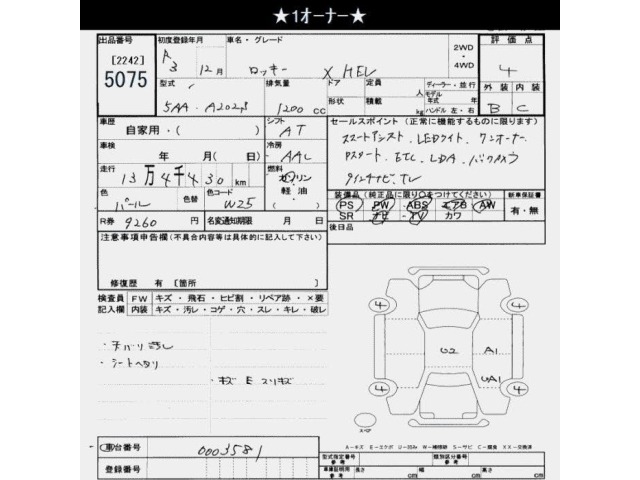 ★1オーナー★
出品番号 初度登録年月 車名・グレード 2WD ・ 4WD 評価点
[2242]
5075
R 3 12月 ロッキー X HEV 4
型式 排気量 ドア 定員 人 ディーラー・並行 外装 内装
5AA-A202S 1200 cc 形状 積載 kg モデル年式 年 ハンドル 左・右 B C
車歴 シフト セールスポイント(正常に機能するものに限ります)
自家用・( ) AT スマートアシスト.LEDライト.ワンオーナー
車検 冷房
年 月(日) AAC Pスタート.ETC.LDA.バックカメラ
走行 燃料
13万4千430km ガソリン・軽油 9インチナビ.TV
色 色替 色コード 装備品(純正品に限り○をつけてください) 新車保証書
パール W25 PS PW ABS エアB AW 有・無
SR ナビ TV カワ
R券 9260円 名変通知期限 月 日 後日品
注意事項申告欄(不具合内容等は具体的に記入して下さい)
修復歴 有 [箇所 ]
検査員 FW キズ・飛石・ヒビ割・リペア跡・×要
記入欄 内装 キズ・汚レ・コゲ・穴・スレ・キレ・破レ
・シートヘタリ
・キズ E スリキズ
4 4
U2 A1
UA1
4 4
A-キズ E-エクボ W-補修跡 S-サビ C-腐食 XX-交換済
車台番号 0003581
登録番号
型式指定番号 参考 類別区分番号 参考
車庫証明用 参考 長さ cm 幅 cm 高さ cm